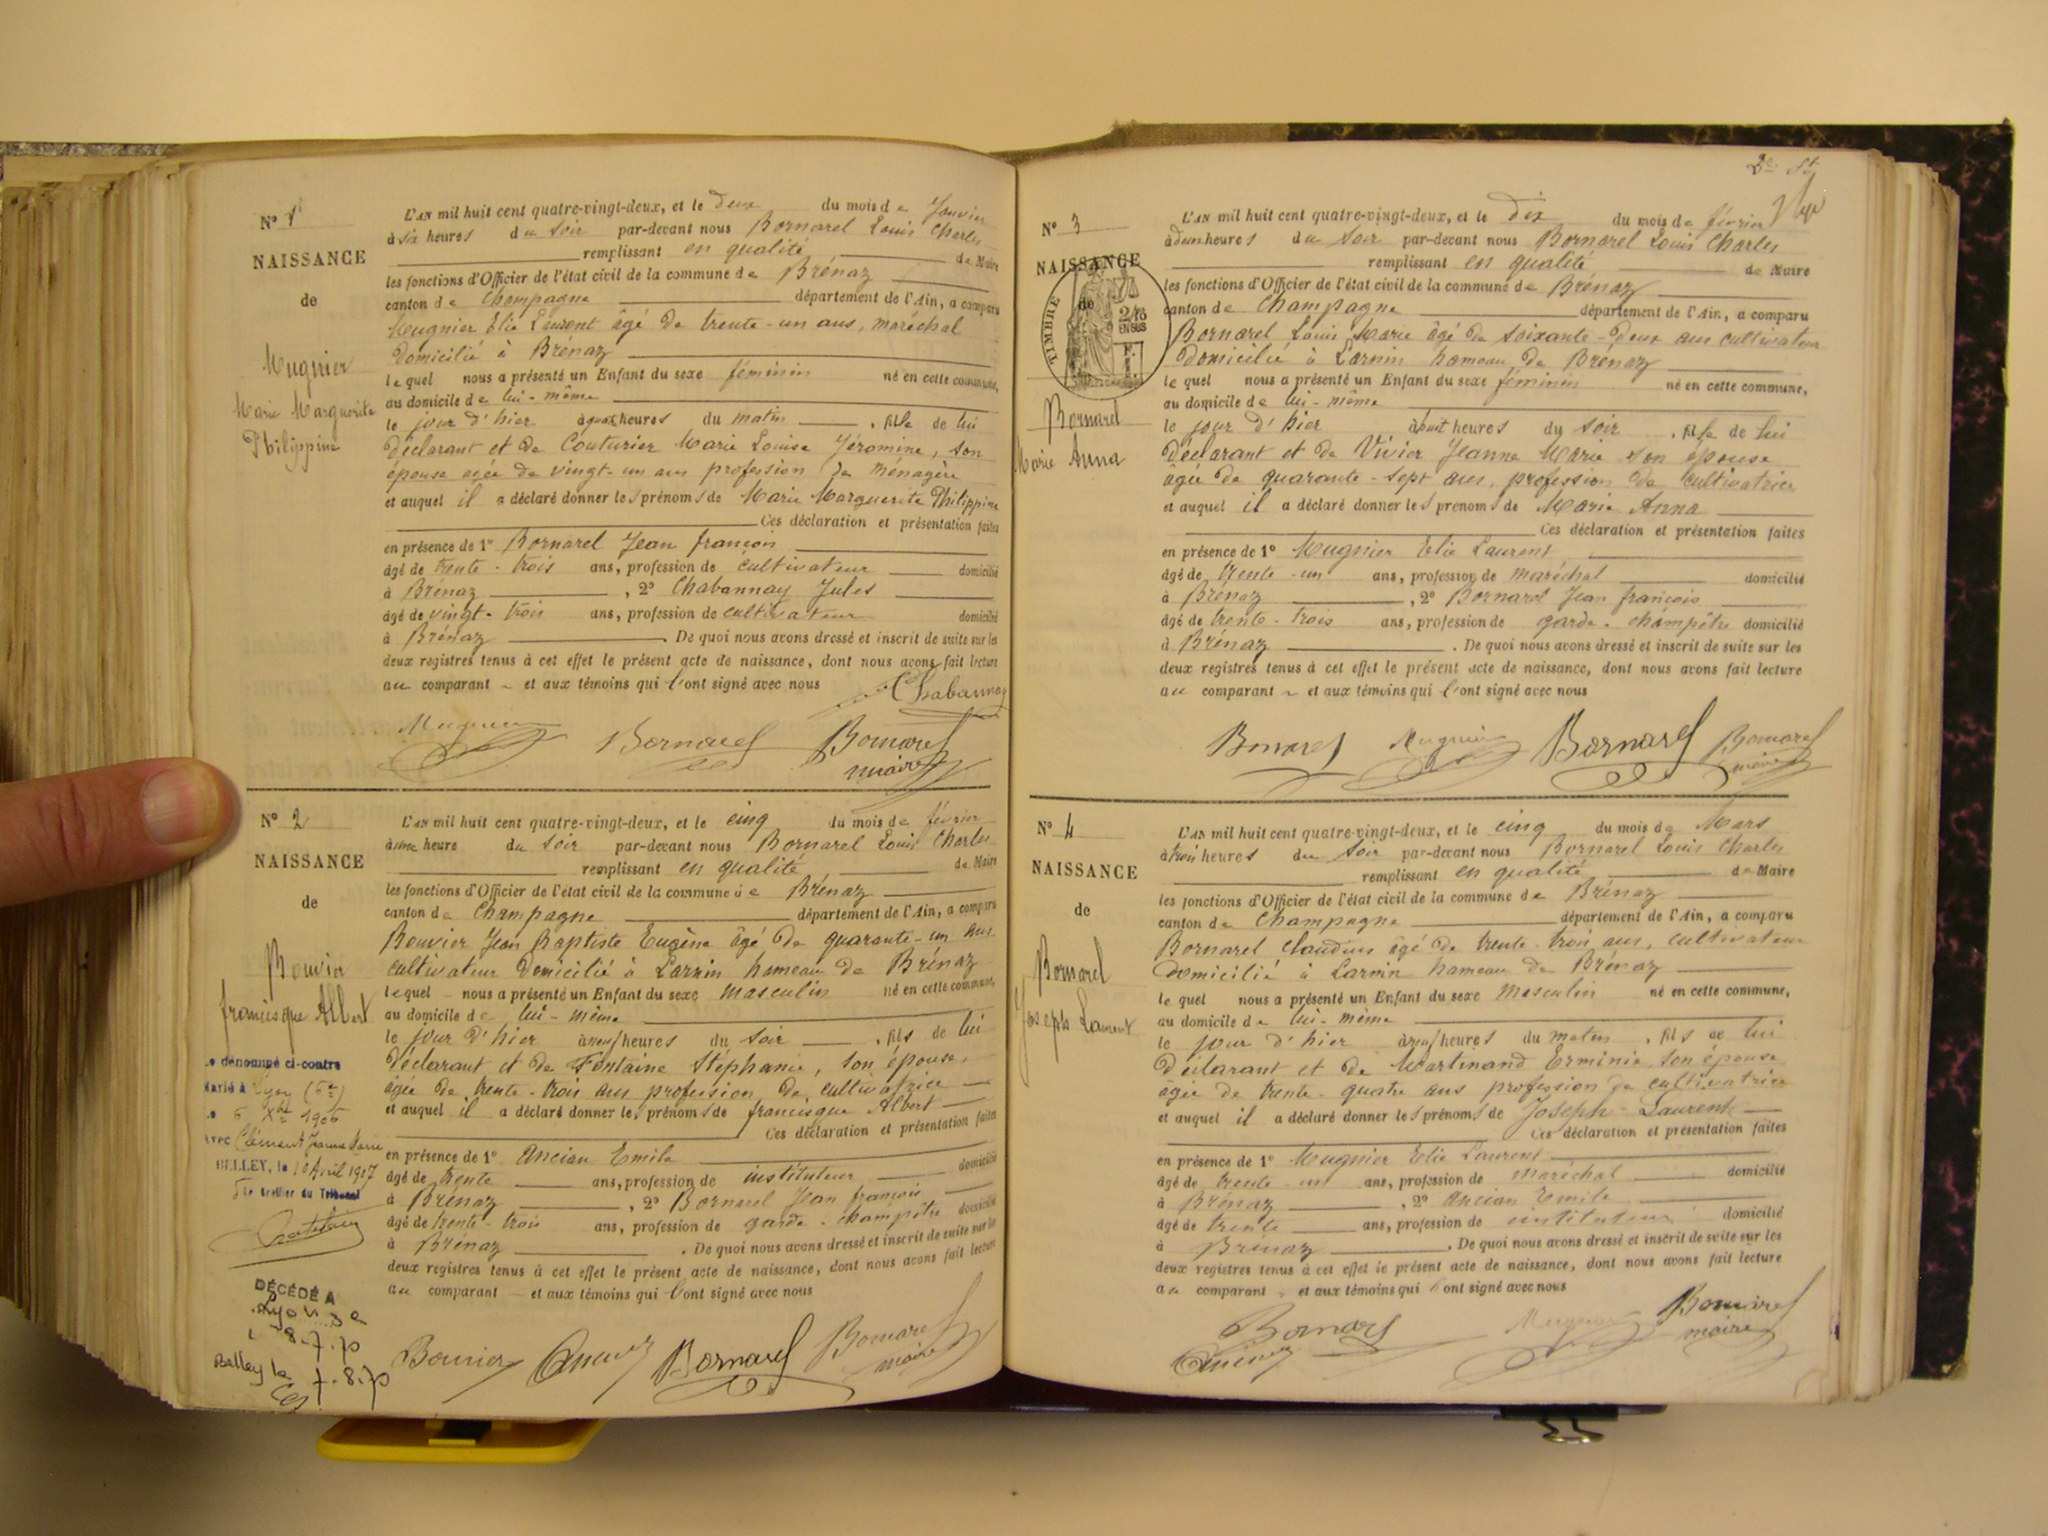 N° 1
NAISSANCE
de
Mugnier
Marie Marguerite
Philippine
L'AN mil huit cent quatre-vingt-deux, et le deux du mois de Janvier
à six heures du soir par-devant nous Bornarel Louis Charles
remplissant en qualité de Maire
les fonctions d'Officier de l'état civil de la commune de Brénaz
canton de Champagne département de l'Ain, a comparu
Mugnier Elie Laurent âgé de trente-un ans, maréchal
domicilié à Brénaz
lequel nous a présenté un Enfant du sexe féminin né en cette commune,
au domicile de lui-même
le jour d'hier à heures du matin, fille de lui
déclarant et de Couturier Marie Louise Jéromine, son
épouse agée de vingt-un ans profession de ménagère
et auquel il a déclaré donner les prénoms de Marie Marguerite Philippine
Ces déclaration et présentation faites
en présence de 1° Bornarel Jean françon
âgé de trente-trois ans, profession de cultivateur domicilié
à Brénaz, 2° Chabannay Jules
âgé de vingt-trois ans, profession de cultivateur domicilié
à Brénaz. De quoi nous avons dressé et inscrit de suite sur les
deux registres tenus à cet effet le présent acte de naissance, dont nous avons fait lecture
au comparant et aux témoins qui l'ont signé avec nous
Chabannay
Mugnier Bornarel Bornarel
maire
N° 2
NAISSANCE
de
Bouvier
francisque Albert
Le dénommé ci-contre
Marié à Lyon (6e)
Le 6 Xbre 1906
avec Clément Jeanne Marie
BELLEY, le 10 Avril 1907
Le Greffier du Tribunal
DÉCÉDÉ A
8.7.70
Belley le
7.8.70
L'AN mil huit cent quatre-vingt-deux, et le cinq du mois de février
à une heure du soir par-devant nous Bornarel Louis Charles
remplissant en qualité de Maire
les fonctions d'Officier de l'état civil de la commune de Brénaz
canton de Champagne département de l'Ain, a comparu
Bouvier Jean Baptiste Eugène âgé de quarante-un ans
cultivateur domicilié à Larnin hameau de Brénaz
lequel nous a présenté un Enfant du sexe masculin né en cette commune,
au domicile de lui-même
le jour d'hier à neuf heures du soir, fils de lui
déclarant et de Fontaine Stéphanie, son épouse,
âgée de trente-trois ans profession de cultivatrice
et auquel il a déclaré donner les prénoms de francisque Albert
Ces déclaration et présentation faites
en présence de 1° Ancian Emile
âgé de trente ans, profession de instituteur domicilié
à Brénaz, 2° Bornarel Jean françois
âgé de trente-trois ans, profession de garde-champêtre domicilié
à Brénaz. De quoi nous avons dressé et inscrit de suite sur les
deux registres tenus à cet effet le présent acte de naissance, dont nous avons fait lecture
au comparant et aux témoins qui l'ont signé avec nous
Bouvier Ancian Bornarel Bornarel
maire
N° 3
NAISSANCE
de
TIMBRE
2/10
EN SUS
Bornarel
Marie Anna
L'AN mil huit cent quatre-vingt-deux, et le dix du mois de février
à deux heures du soir par-devant nous Bornarel Louis Charles
remplissant en qualité de Maire
les fonctions d'Officier de l'état civil de la commune de Brénaz
canton de Champagne département de l'Ain, a comparu
Bornarel Louis Marie âgé de soixante-deux ans cultivateur
domicilié à Larnin hameau de Brénaz
lequel nous a présenté un Enfant du sexe féminin né en cette commune,
au domicile de lui-même
le jour d'hier à huit heures du soir, fille de lui
déclarant et de Vivier Jeanne Marie son épouse
âgée de quarante-sept ans, profession de cultivatrice
et auquel il a déclaré donner les prénoms de Marie Anna
Ces déclaration et présentation faites
en présence de 1° Mugnier Elie Laurent
âgé de trente-un ans, profession de maréchal domicilié
à Brénaz, 2° Bornarel Jean françois
âgé de trente-trois ans, profession de garde-champêtre domicilié
à Brénaz. De quoi nous avons dressé et inscrit de suite sur les
deux registres tenus à cet effet le présent acte de naissance, dont nous avons fait lecture
au comparant et aux témoins qui l'ont signé avec nous
Bornarel Mugnier Bornarel Bornarel
maire
N° 4
NAISSANCE
de
Bornarel
Joseph Laurent
L'AN mil huit cent quatre-vingt-deux, et le cinq du mois de Mars
à trois heures du soir par-devant nous Bornarel Louis Charles
remplissant en qualité de Maire
les fonctions d'Officier de l'état civil de la commune de Brénaz
canton de Champagne département de l'Ain, a comparu
Bornarel Claudius âgé de trente-trois ans, cultivateur
domicilié à Larnin hameau de Brénaz
lequel nous a présenté un Enfant du sexe masculin né en cette commune,
au domicile de lui-même
le jour d'hier à neuf heures du matin, fils de lui
déclarant et de Martinand Erminie son épouse
âgée de trente-quatre ans profession de cultivatrice
et auquel il a déclaré donner les prénoms de Joseph-Laurent
Ces déclaration et présentation faites
en présence de 1° Mugnier Elie Laurent
âgé de trente-un ans, profession de maréchal domicilié
à Brénaz, 2° Ancian Emile
âgé de trente ans, profession de instituteur domicilié
à Brénaz. De quoi nous avons dressé et inscrit de suite sur les
deux registres tenus à cet effet le présent acte de naissance, dont nous avons fait lecture
au comparant et aux témoins qui l'ont signé avec nous
Bornarel Mugnier Bornarel
Ancian maire